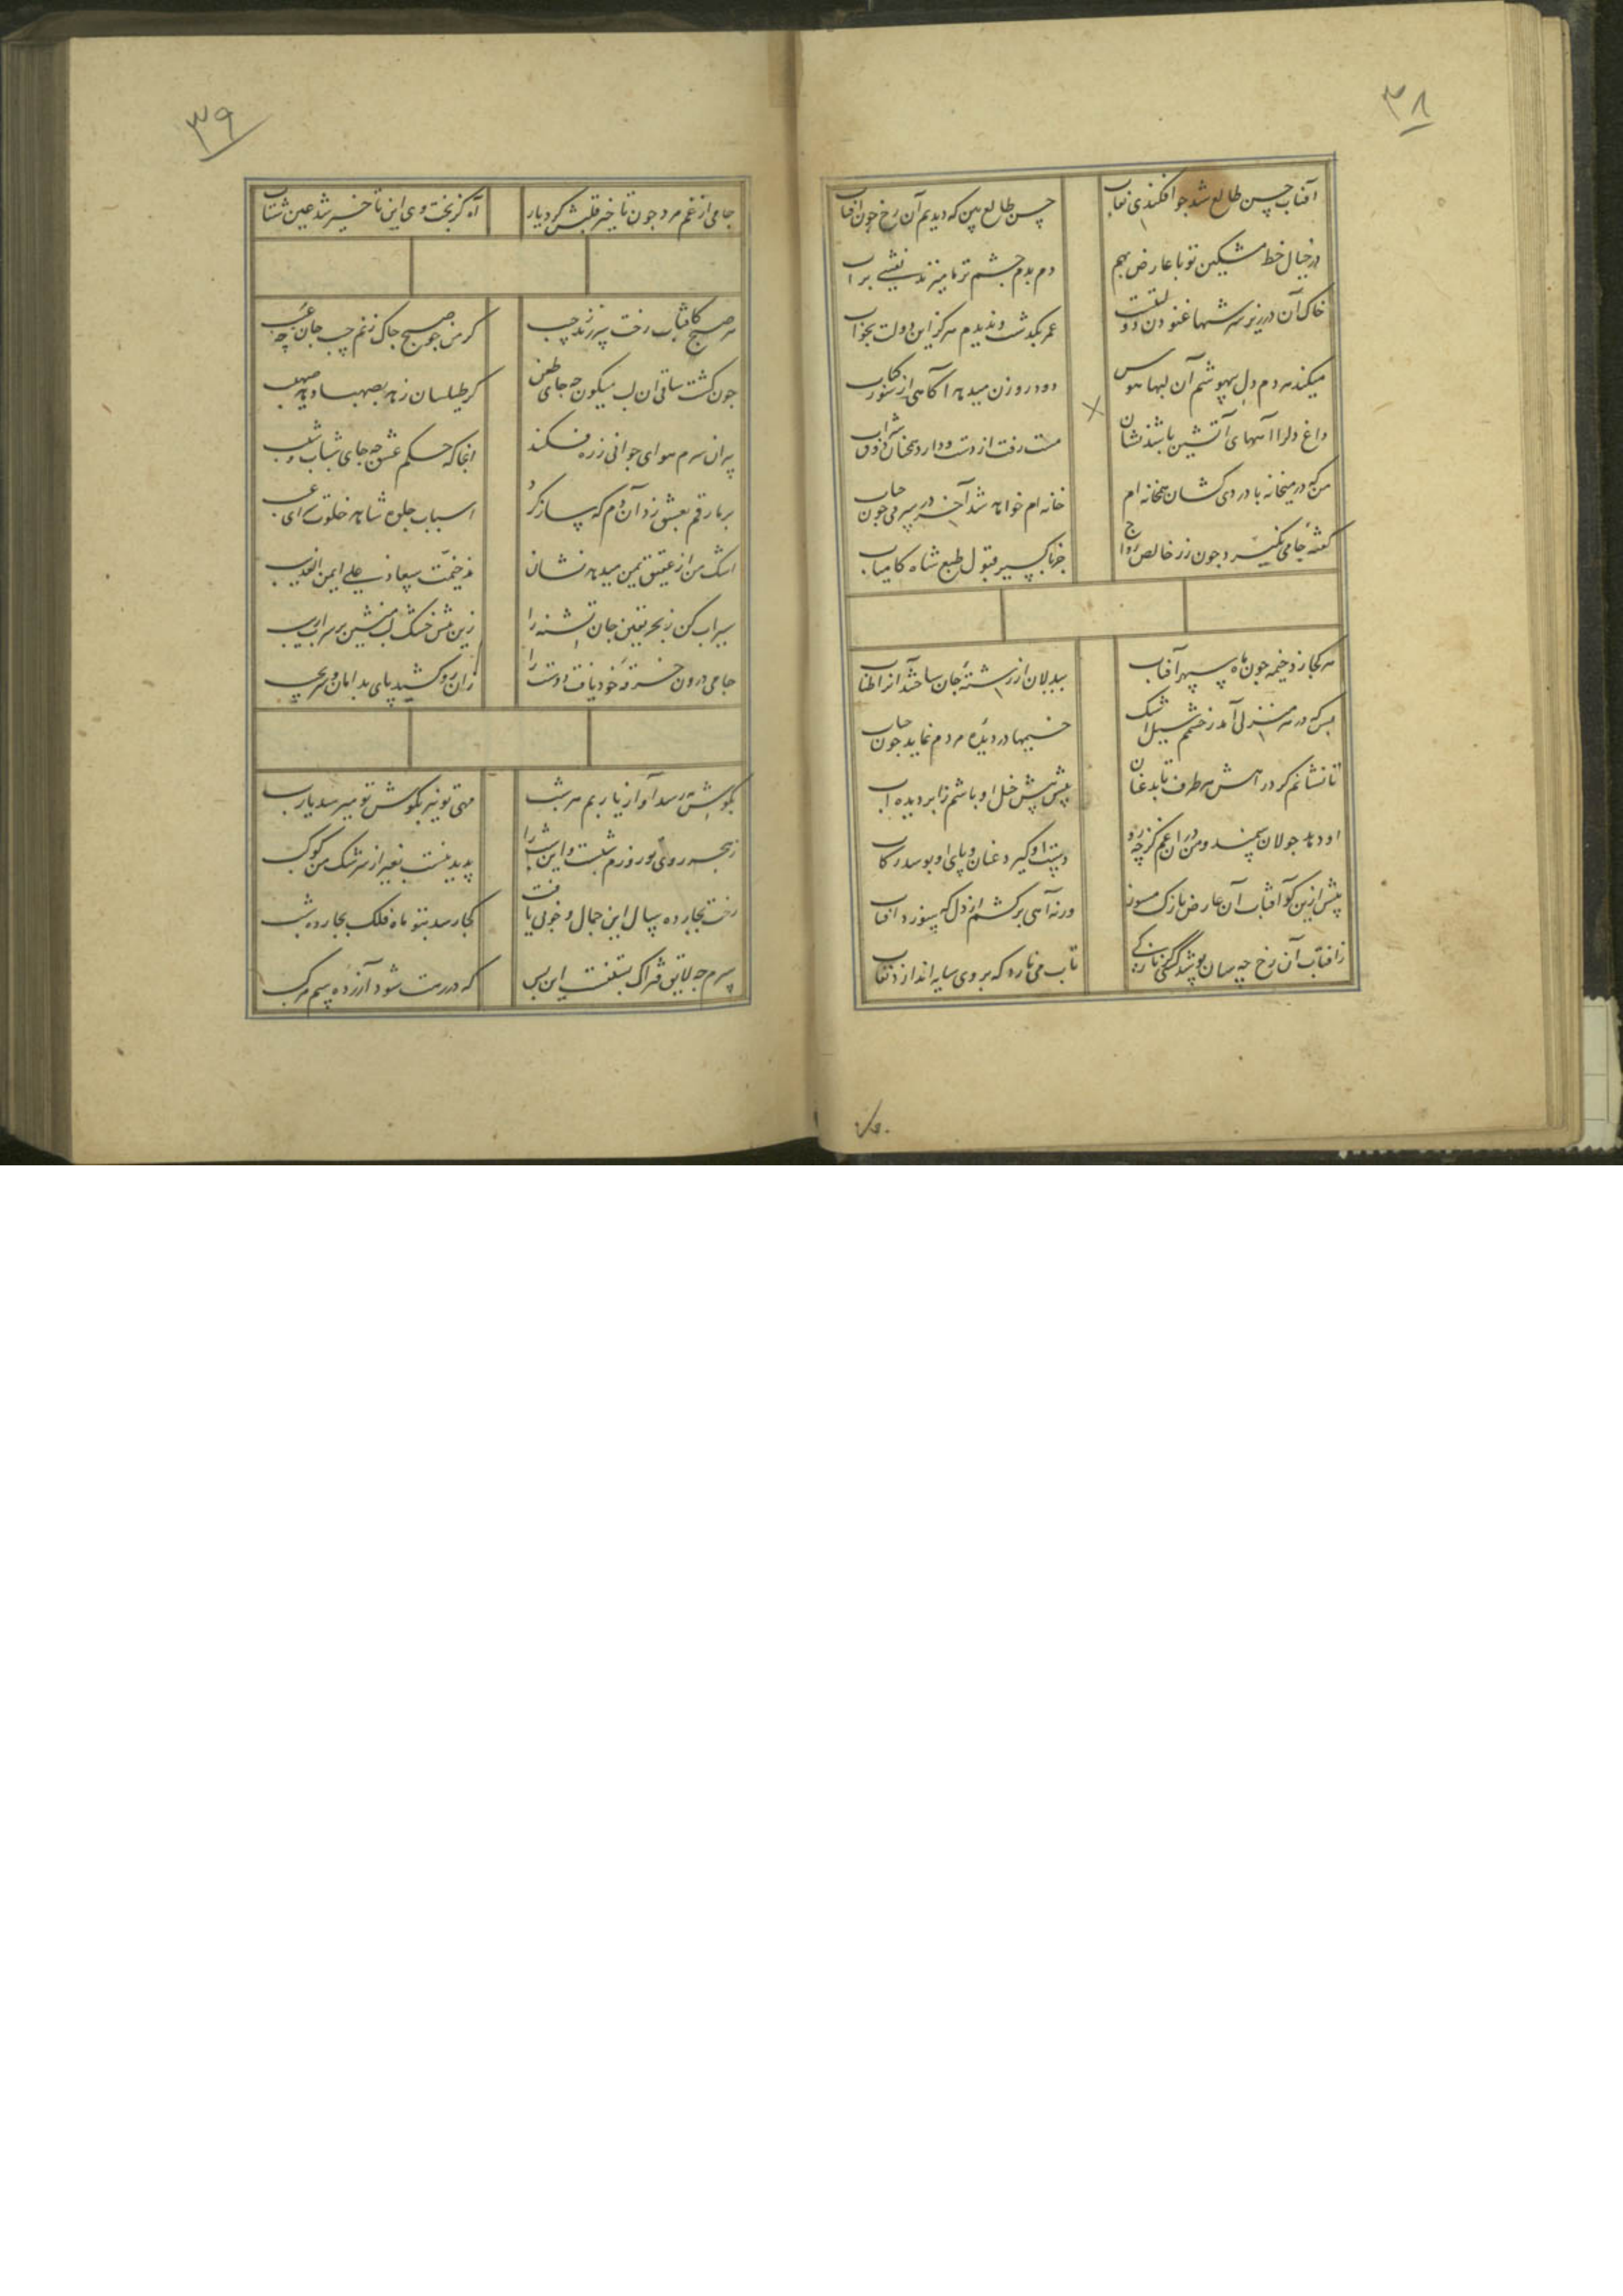 ۳۸
آفتاب حسن طالع شد چو افکندی نقاب
حسن طالع بین که دیدیم آن رخ چون آفتاب
در خیال خط مشکین تو با عارض بهم
دم بدم چشم ترما میزند نقشی بر آب
خاک آن در زیر سر شبها غنودن دولتست
عمر بگذشت و ندیدم هرگز این دولت بخواب
میکند هر دم دل بیهوشم آن لبها هوس
مست رفت از دست و دارد همچنان ذوق شراب
داغ دلرا آههای آتشین باشد نشان
دود روزن میدهد آگاهی از سوز کباب
من که در میخانه با دردی کشان همخانه ام
خانه ام خواهد شد آخر در سر می چون حباب
گفتهٔ جامی نگیرد چون زر خالص رواج
جز باکسیر قبول طبع شاه کامیاب
هر کجا زد خیمه چون ماه سپهر آفتاب
بیدلان از رشتهٔ جان ساختند آنرا طناب
بس که در هر منزلی آمد ز چشمم سیل اشک
خیمها در دیدهٔ مردم نماید چون حباب
تا نشانم گرد راهش هر طرف تابد عنان
پیش پیش خیل او باشم ز ابر دیده آب
او دهد جولان سمند و من در آن غم کز چه رو
دست او گیرد عنان و پای او بوسد رکاب
پیش ازین گو آفتاب آن عارض نازک مسوز
ورنه آهی برکشم از دل که سوزد آفتاب
ز آفتاب آن رخ چه سان پوشد کسی کز نازکی
تاب می نارد که بر وی سایه اندازد نقاب
۳۹
جامی از غم مرد چون تاخیر قتلش کرد یار
آه کز بخت وی این تاخیر شد عین شتاب
هر صبح کافتاب رخت سر زند ز جیب
گر من چو صبح چاک زنم جیب جان چه عیب
چون گشت ساقی آن لب میگون چه جای طعن
گر طیلسان زهد بصهبا دهد صهیب
پیرانه سرم هوای جوانی ز ره فکند
آنجا که حکم عشق چه جای شباب و شیب
بر ما رقم بعشق زد آن دم که ساز کرد
اسباب جلوه شاهد خلوت سرای غیب
اشک من از عقیق یمن میدهد نشان
سیراب کن ز بحر یقین جان تشنه را
زین بیش خشک لب منشین بر سراب ریب
جامی درون خرقهٔ خود یافت دوست را
زان رو کشید پای بدامان و سر بجیب
بگوشش نرسد آواز یاربم هر شب
مهی تو نیز بگوش تو میرسد یارب
ز هجر روی تو روزم شبست و این شب را
پدید نیست بغیر از سرشک من کوکب
رخت بچارده سال این جمال و خوبی یافت
کجا رسد بتو ماه فلک بچارده شب
سرم چه لایق فتراک بستنست این بس
که در رهت شود آزرده سم مرکب